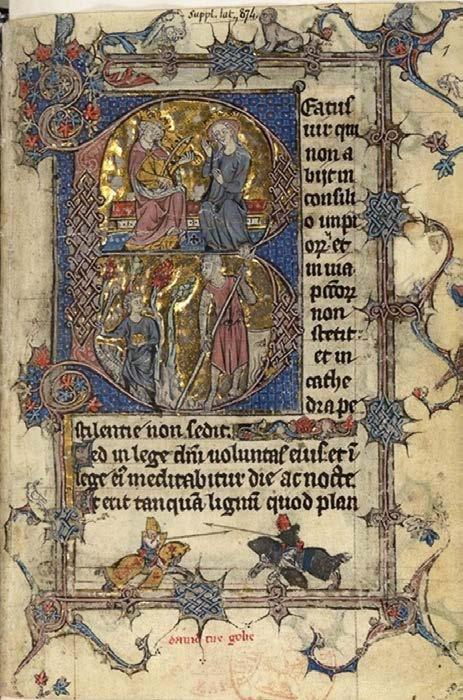 Suppl. lat. 874.
1
Eatus
uir qui
non a
bijt in
consili
o impi
oꝝ et
in uia
pccoꝝ
non
stetit
et in
cathe
dra pe
stilentie non sedit.
Sed in lege dn̄i uoluntas eius: et ī
lege eī meditabitur die ac nocte.
Et erit tanquā lignū quod plan
dauid tue golie